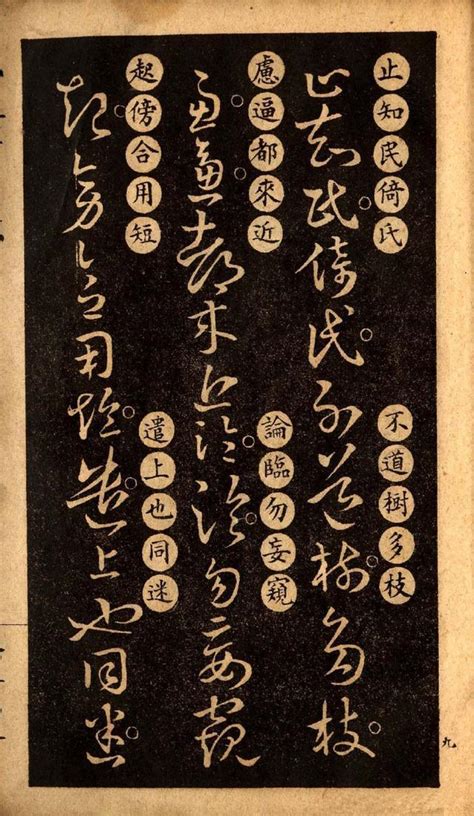 止知民倚氏
不道樹多枝
止知民倚氏不道樹多枝
慮逼都來近
論臨勿妄窺
慮逼都來近論臨勿妄窺
起傍合用短
遣上也同迷
起傍合用短遣上也同迷
九